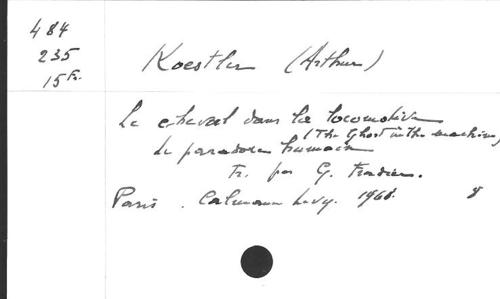 484
235
15 Fr.
Koestler (Arthur)
Le cheval dans la locomotive
(The Ghost in the machine)
Le paradoxe humain
Tr. par G. Fradier.
Paris. Calmann Levy. 1968. 8